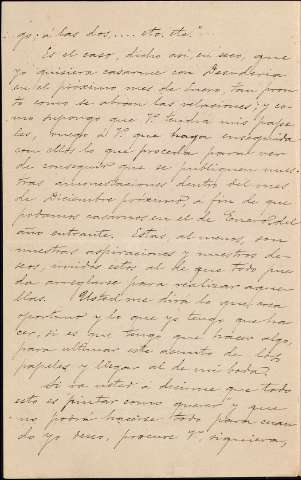 go; á las dos, .... etc. etc."...
Es el caso, dicho así, en seco, que
yo quisiera casarme con Desideria
en el próximo mes de Enero, tan pron-
to como se abran las velaciones; y co-
mo supongo que Vd. tendrá mis pape-
les, ruego á Vd. que haga enseguida
con ellos lo que proceda para ver
de conseguir que se publiquen nues-
tras amonestaciones dentro del mes
de Diciembre próximo, a fin de que
podamos casarnos en el de Enero del
año entrante. Estas, al menos, son
nuestras aspiraciones y nuestros de-
seos, unidos estos al de que todo pue-
da arreglarse para realizar aque-
llas. Usted me dirá lo que crea
oportuno y lo que yo tengo que ha-
cer, si es que tengo que hacer algo,
para ultimar este asunto de los
papeles y llegar al de mi boda?
Si va usted á decirme que todo
esto es pintar como querer y que
no podrá hacerse todo para cuan-
do yo deseo, procure Vd., siquiera,